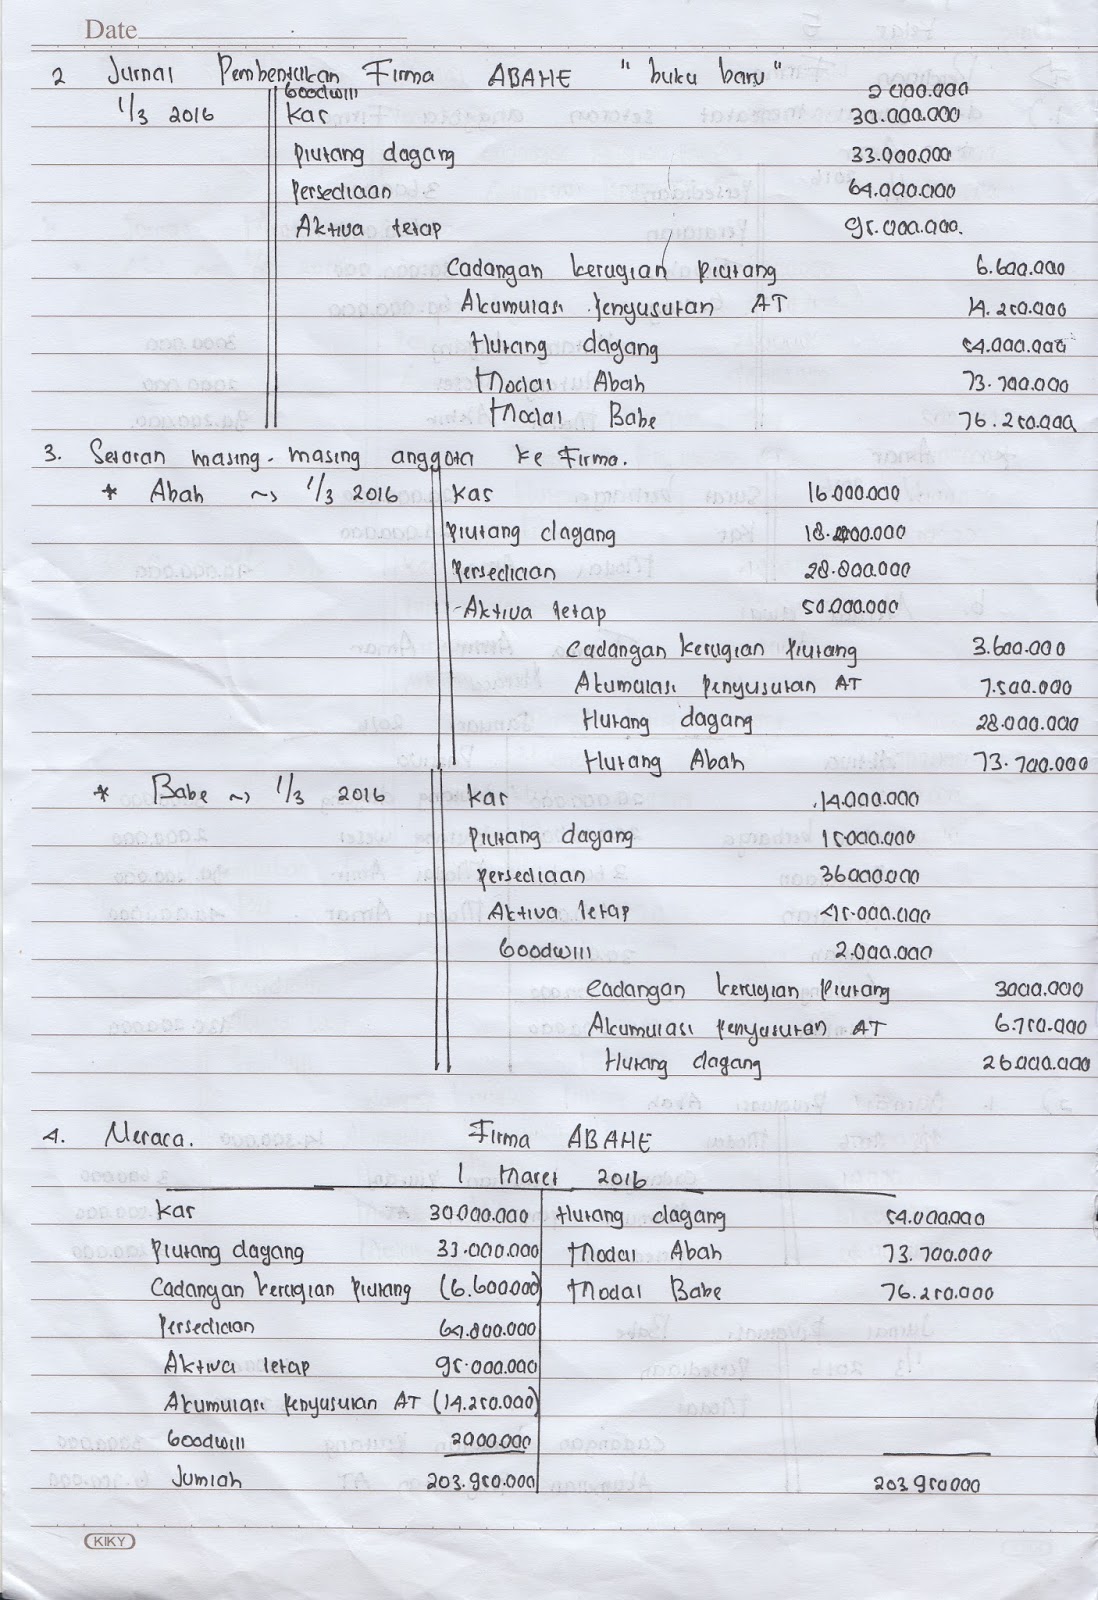 Date
2 Jurnal Pembentukan Firma ABAHE "buku baru"
Goodwill 2.000.000
1/3 2016 Kas 30.000.000
Piutang dagang 33.000.000
Persediaan 64.000.000
Aktiva tetap 95.000.000.
Cadangan kerugian piutang 6.600.000
Akumulasi Penyusutan AT 14.250.000
Hutang dagang 54.000.000
Modal Abah 73.700.000
Modal Babe 76.250.000
3. Setoran masing-masing anggota ke Firma.
* Abah ~> 1/3 2016 Kas 16.000.000
Piutang dagang 18.000.000
Persediaan 28.800.000
-Aktiva tetap 50.000.000
Cadangan kerugian Piutang 3.600.000
Akumulasi penyusutan AT 7.500.000
Hutang dagang 28.000.000
Hutang Abah 73.700.000
* Babe ~> 1/3 2016 Kas 14.000.000
Piutang dagang 15000.000
Persediaan 36000.000
Aktiva tetap 45.000.000
Goodwill 2.000.000
Cadangan kerugian Piutang 3000.000
Akumulasi penyusutan AT 6.750.000
Hutang dagang 26.000.000
4. Neraca. Firma ABAHE
1 Maret 2016
Kas 30.000.000 Hutang dagang 54.000.000
Piutang dagang 33.000.000 Modal Abah 73.700.000
Cadangan kerugian Piutang (6.600.000) Modal Babe 76.250.000
Persediaan 64.800.000
Aktiva tetap 95.000.000
Akumulasi Penyusutan AT (14.250.000)
Goodwill 2000.000
Jumlah 203.950.000 203.950000
KIKY